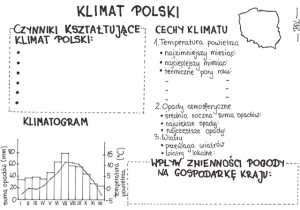 KLIMAT POLSKI
CZYNNIKI KSZTAŁTUJĄCE
KLIMAT POLSKI:
CECHY KLIMATU
1. Temperatura powietrza
• najzimniejszy miesiąc:
• najcieplejszy miesiąc:
• termiczne pory roku:
-
-
-
2. Opady atmosferyczne
• średnia roczna suma opadów:
• największe opady:
• najczęstsze opady:
3. Wiatry
• przewaga wiatrów
• wiatry lokalne:
KLIMATOGRAM
suma opadów [mm]
80
60
40
20
0
15
10
5
0
-5
temperatura powietrza
°C
I II III IV V VI VII VIII IX X XI XII
WPŁYW ZMIENNOŚCI POGODY
NA GOSPODARKĘ KRAJU: